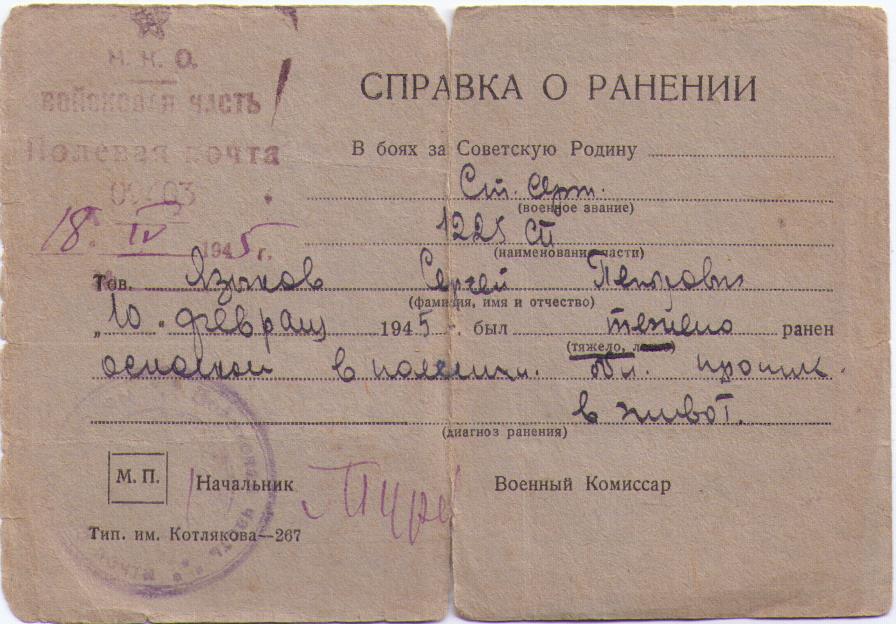 Н. К. О.
Войсковая часть
Полевая почта
18. IV 1945 г.
СПРАВКА О РАНЕНИИ
В боях за Советскую Родину
Ст. серж.
(военное звание)
1225 СП
(наименование части)
Тов. Языков Сергей Петрович
(фамилия, имя и отчество)
„10„ февраля 1945 г. был тежело ранен
(тяжело, легко)
осколком в поясничн. обл. проник.
в живот.
(диагноз ранения)
М. П. Начальник
Военный Комиссар
Тип. им. Котлякова—267